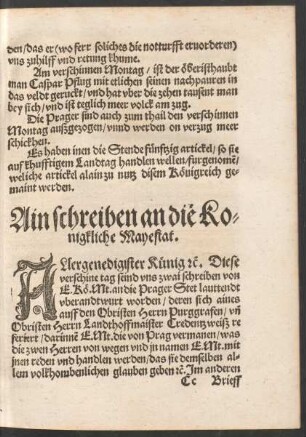 den/das er (wo ferr solichts die notturfft eruorderen)
vns zuhilff vnd rettung khume.
Am verschinnen Montag / ist der öberisthaubt
man Caspar Pflug mit etlichen seinen nachpauren in
das veldt geruckt/vnd hat vber die zehen tausent man
bey sich/vnd ist teglich meer volck am zug.
Die Prager sind auch zum thail den verschinnen
Montag außgezogen/vnnd werden on verzug meer
schickhen.
Es haben inen die Stende fünfzig artickel/so sy
auf khunfftigem Landtag handlen wellen/fürgenomē/
weliche artickel alain zu nutz disem Königreich ge-
maint werden.
Ain schreiben an die Ko-
nigkliche Mayestat.
ALlergenedigister Künig ꝛc. Diese
verschine tag send vns zwai schreiben von
E.Kö.Mt. an die Prager Stet lauttendt
vberandtwurt worden / deren sich aines
auff den Obristen Herrn Purggrafen/ vñ
Obristen Herrn Landthoffmaister Credentzweiß re
feriert/darinnē E.Mt. die von Prag vermanen/was
die zwen Herren von wegen vnd in namen E.Mt. mit
jnen reden vnd handlen werden/das sie demselben al-
lem volkhombenlichen glauben geben ꝛc. Im anderen
Cc Brieff